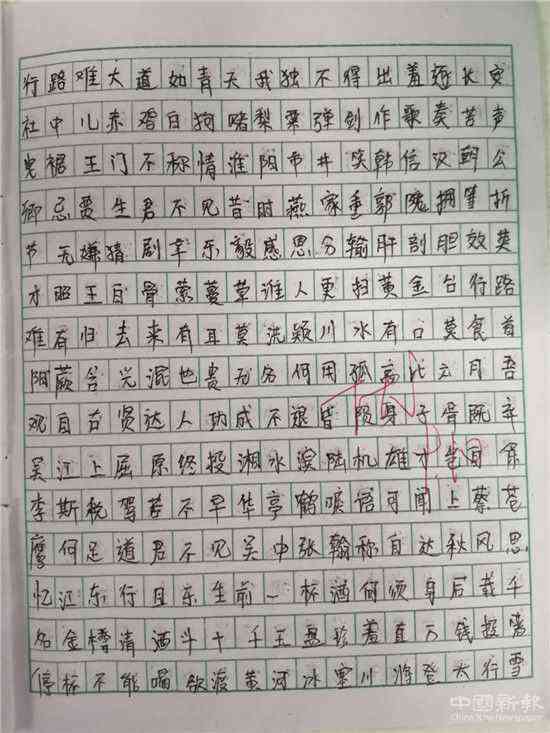 行路难大道如青天我独不得出羞逐长安
社中儿赤鸡白狗赌梨栗弹剑作歌奏苦声
曳裾王门不称情淮阳市井笑韩信汉朝公
卿忌贾生君不见昔时燕家重郭隗拥篲折
节无嫌猜剧辛乐毅感恩分输肝剖胆效英
才昭王白骨萦蔓草谁人更扫黄金台行路
难有归去来有耳莫洗颖川水有口莫食首
阳蕨含光混世贵无名何用孤高比云月吾
观自古贤达人功成不退皆陨身子胥既弃
吴江上屈原终投湘水滨陆机雄才岂自保
李斯税驾苦不早华亭鹤唳语可闻上蔡苍
鹰何足道君不见吴中张翰称自达秋风思
忆江东行且乐生前一杯酒何须身后载千
名金樽清酒斗十千玉盘珍羞直万钱投箸
停杯不能喝欲渡黄河冰塞川将登大行雪
中國新報